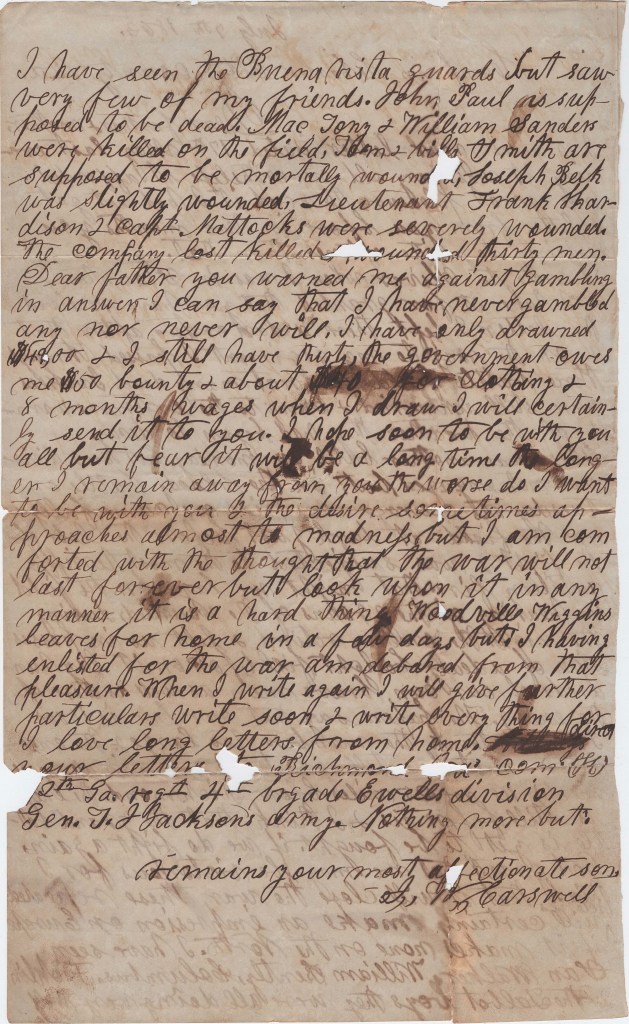 I have seen the Buena vista guards but saw
very few of my friends. John Paul is sup-
posed to be dead. Mac Tony & William Sanders
were killed on the field, Tom & Billy Smith are
supposed to be mortally wounded, Joseph Belk
was slightly wounded, Lieutenant Frank Har-
dison & Capt Mattocks were severly wounded.
the company lost killed wounded thirty men.
Dear father you warned me against gambling
in answer I can say that I have never gambled
any nor never will. I have only drawned
& I still have thirty, the government owes
me $50 bounty & about $40 for clothing &
8 months wages when I draw I will certain-
ly send it to you. I hope soon to be with you
all but fear it will be a long time the long-
er I remain away from you the worse do I want
to be with you & the desire sometimes ap-
proaches almost to madness but I am com
forted with the thought that the war will not
last forever but look upon it in any
manner it is a hard thing Woodville Wiggins
leaves for home in a few days but I having
enlisted for the war am debared from that
pleasure. When I write again I will give further
particulars write soon & write every thing for
I love long letters from home. direct
your letters to Richmond Va com
12th Ga. regt 4th brgade Ewells division
Gen. T. J Jacksons army. Nothing more but
remains your most affectionate son
J. W. Carswell